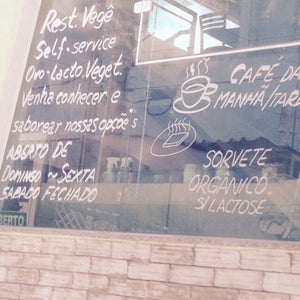 Rest. Vegê
Self-service
Ovo-Lacto Veget.
Venha conhecer e
saborear nossas opções
ABERTO DE
DOMINGO ~ SEXTA
SABADO FECHADO
CAFÉ DA
MANHÃ/TAR
SORVETE
ORGÂNICO
S/LACTOSE
BERTO